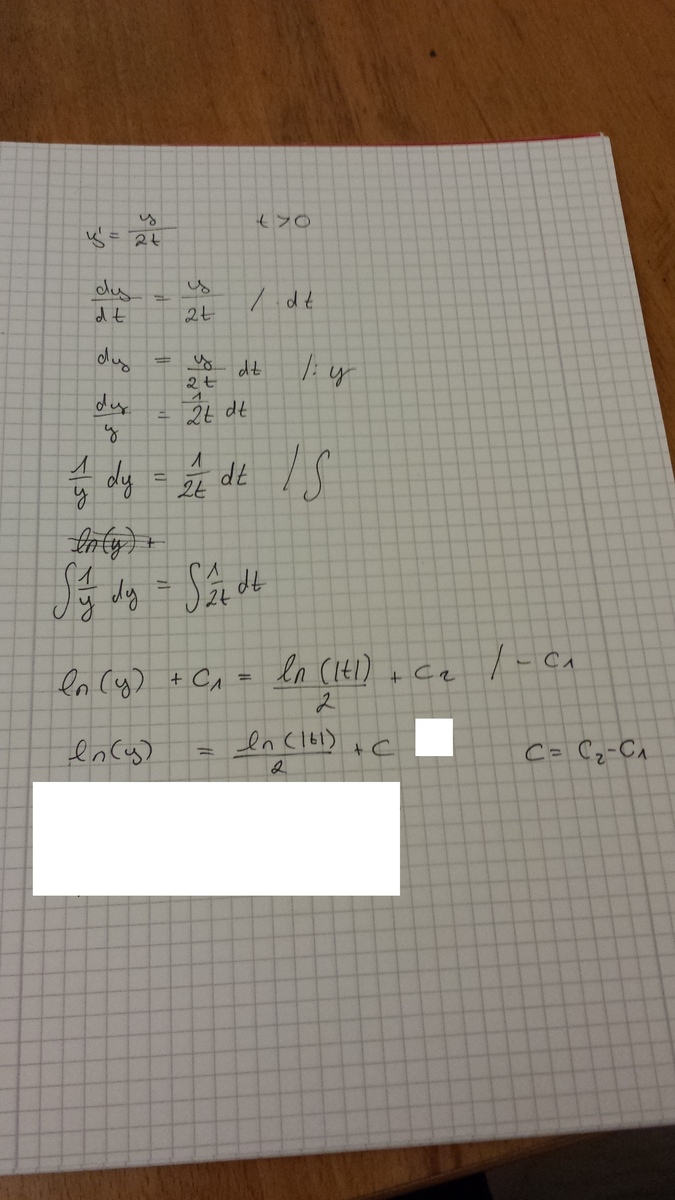 y' = y/2t t > 0
dy/dt = y/2t / · dt
dy = y/2t dt /: y
dy/y = 1/2t dt
1/y dy = 1/2t dt / ∫
ln(y) +
∫ 1/y dy = ∫ 1/2t dt
ln(y) + C₁ = ln(|t|)/2 + C₂ / - C₁
ln(y) = ln(|t|)/2 + C C = C₂ - C₁